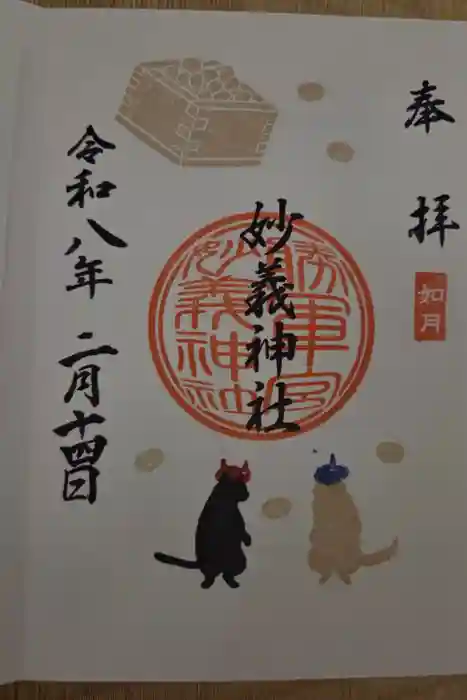 奉拝
如月
妙義神社
勝軍宮
妙義神社
令和八年二月十四日